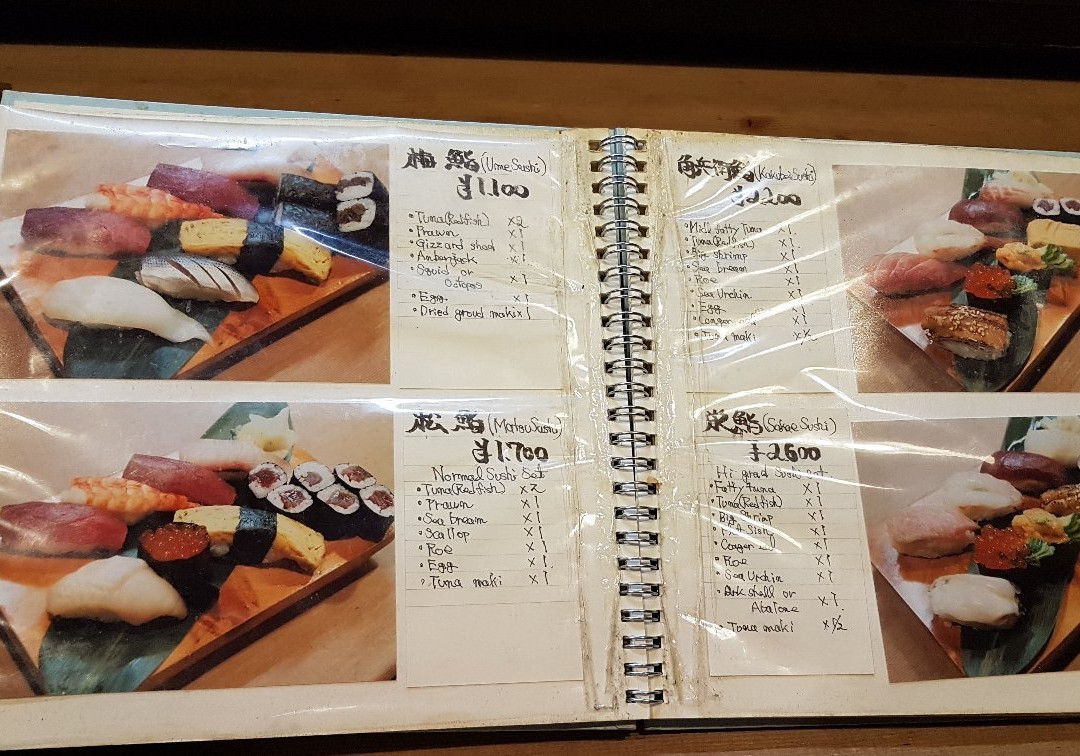 梅鮨(Ume Sushi)
¥1.100
•Tuna(Redfish) ×2
•Prawn ×1
•Gizzard shad ×1
•Amberjack ×1
•Sqoid or
Octopas ×1
•Egg ×1
•Dried groud maki×1
松鮨(Matsu Sushi)
¥1.700
Normal Sushi Set
•Tuna(Redfish) ×2
•Prawn ×1
•Sea bream ×1
•Scallop ×1
•Roe ×1
•Egg ×1
•Tuna maki ×1
(Kakubei Sushi)
•Midi fatty Tuna ×1.
•Tuna(Redfish) ×1.
•Big Shrimp ×1.
•Sea bream ×1.
•Roe ×1
•Sea Urchin ×1.
•Egg ×1
•Conger eel ×1
•Tuna maki
栄鮨(Sakae Sushi)
¥2.600
Hi grad Sushi set
•Fatty tuna ×1
•Tuna(Redfish) ×1
•Big Shrimp ×1
×1
•Conger eel ×1
•Roe ×1
•Sea Urchin ×1
•Ark shell or
Abalone ×1.
•Tuna maki ×1/2